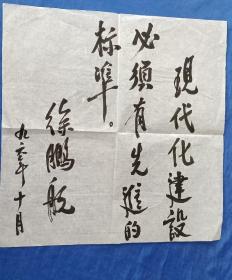 現代化建設
必須有先進的
标準。
徐鹏航
九二年十月